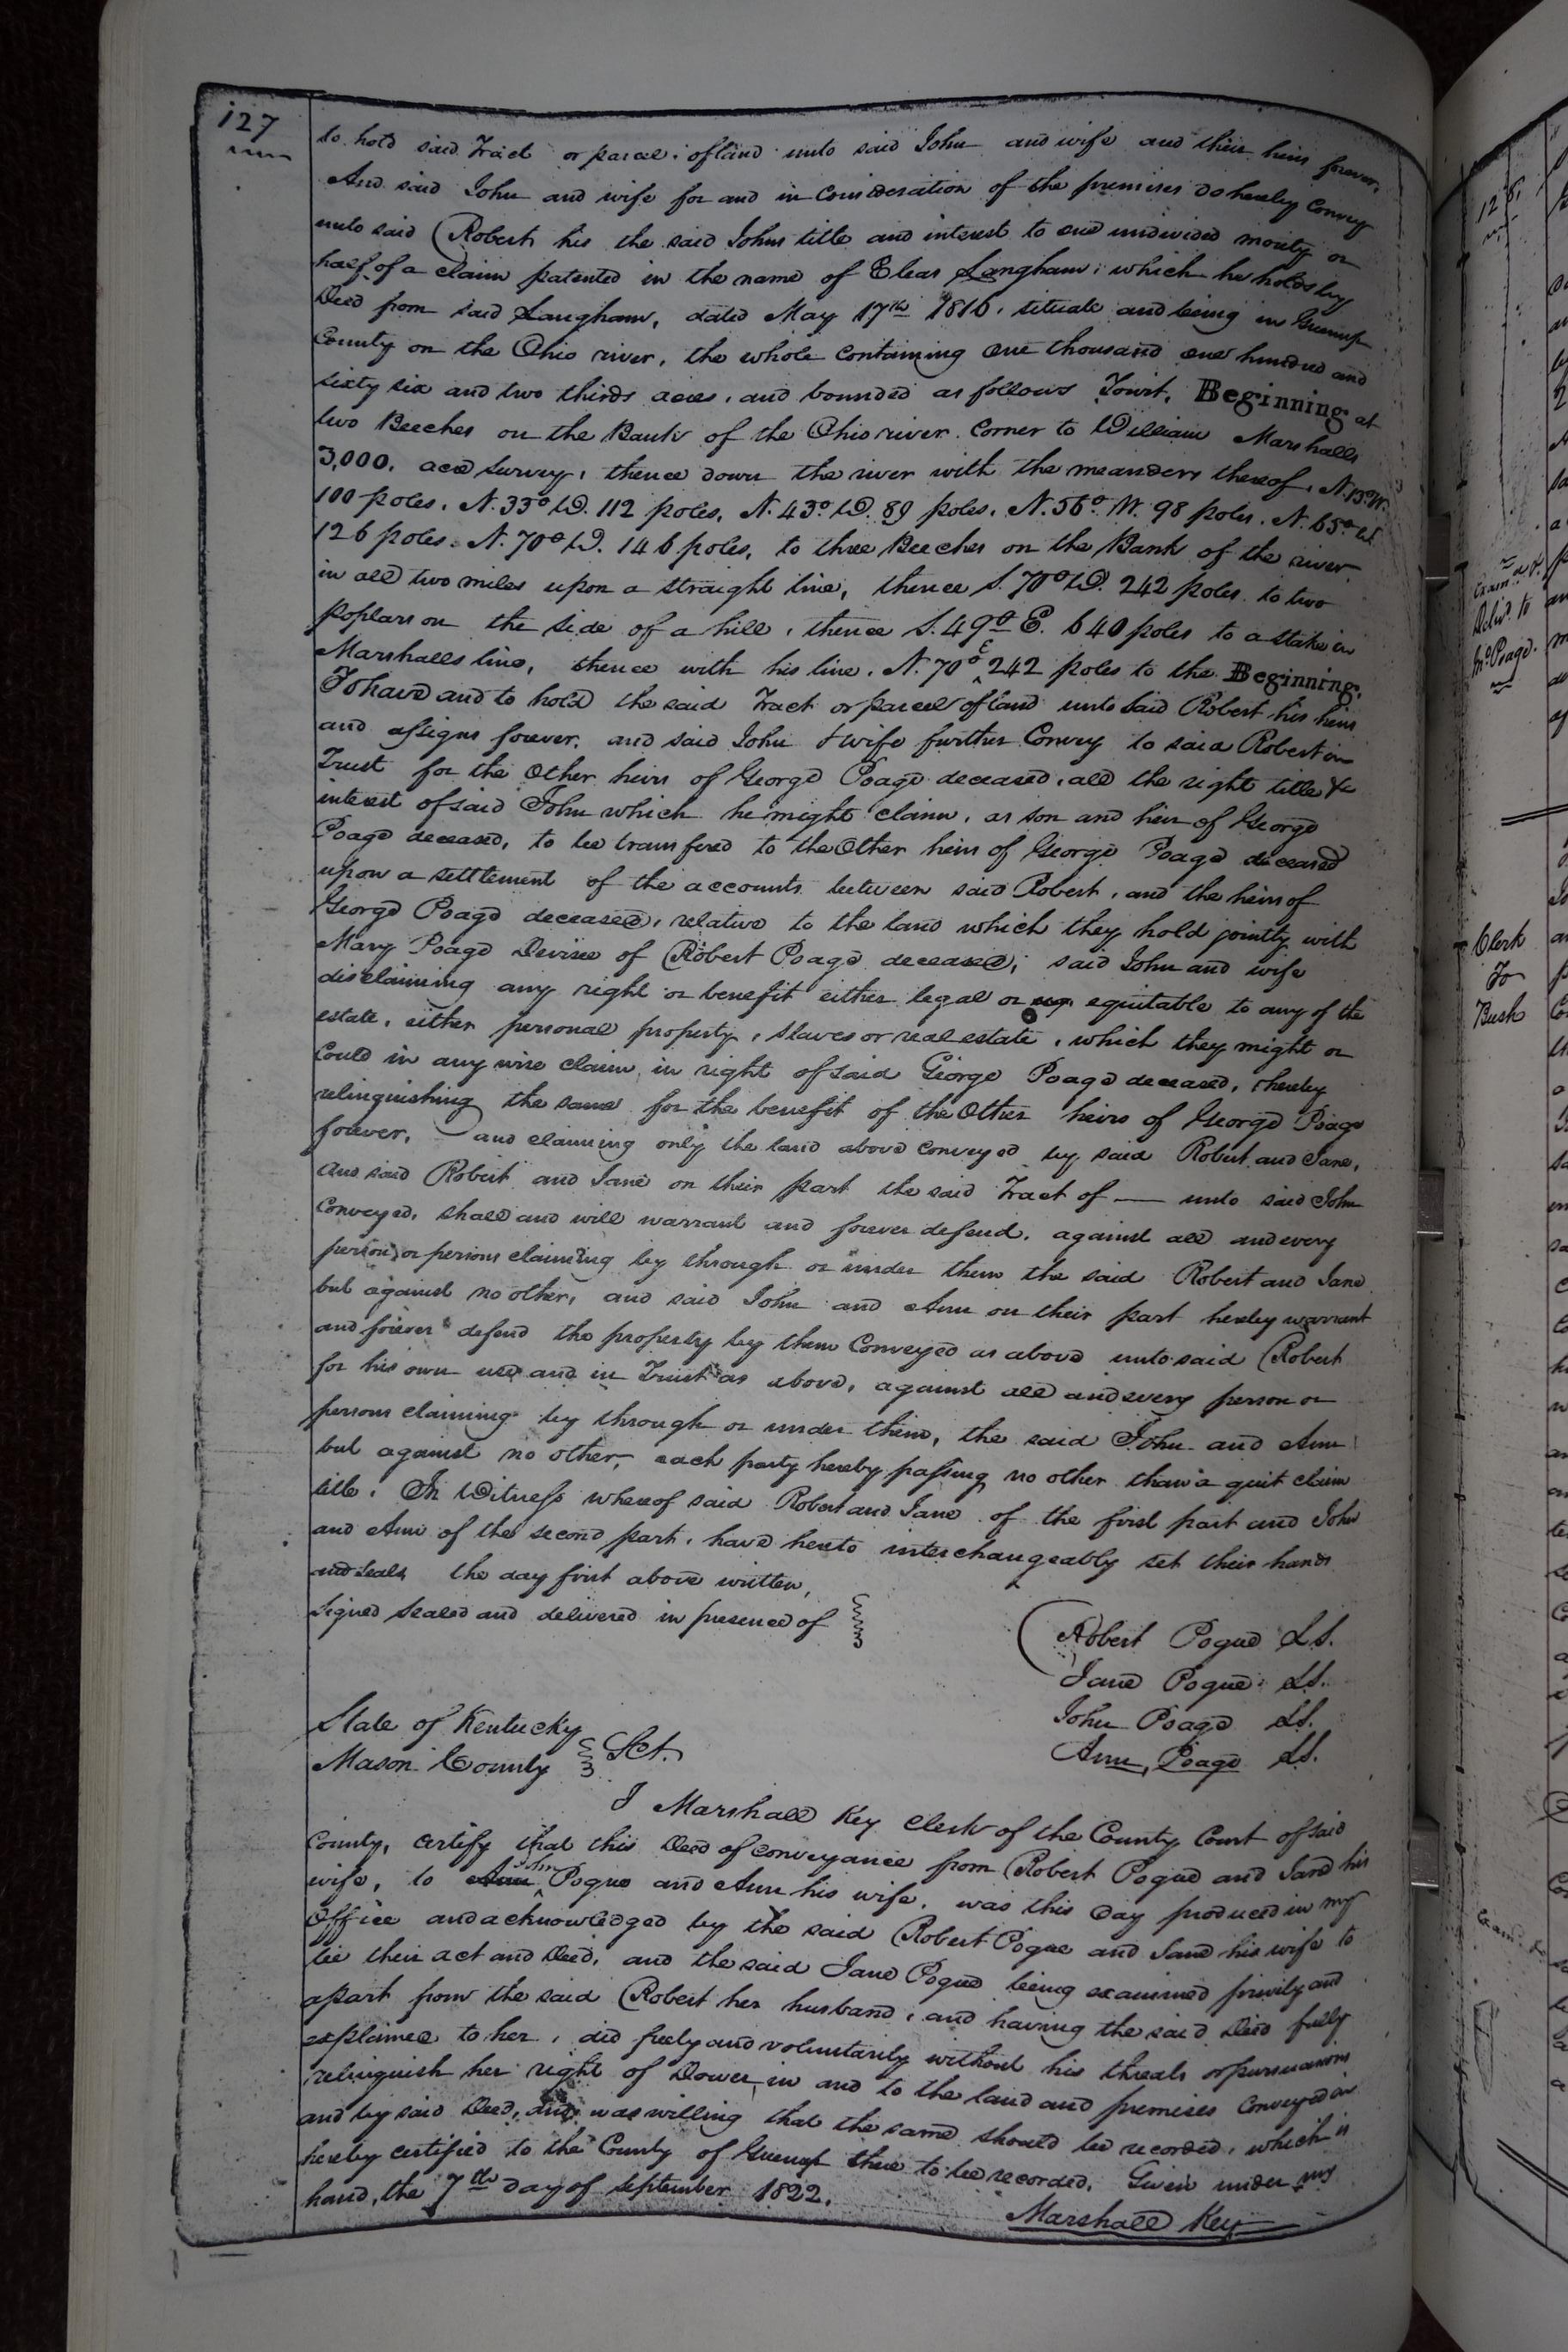 127
to hold said Tract or parcel of land unto said John and wife and their heirs forever.
And said John and wife for and in Consideration of the premises do hereby Convey
unto said Robert his the said Johns title and interest to one undivided moiety or
half of a claim patented in the name of Elias Langham, which he holds by
Deed from said Langham, dated May 17th 1816, situate and being in Greenup
County on the Ohio river, the whole containing One thousand one hundred and
sixty six and two thirds acres, and bounded as follows Towit, Beginning at
two Beeches on the Bank of the Ohio river Corner to William Marshalls
3,000, acre survey, thence down the river with the meanders thereof, N. 13° W.
100 poles, N. 33° W. 112 poles, N. 43° W. 89 poles, N. 56° W. 98 poles, N. 65° W.
126 poles, N. 70° W. 146 poles, to three Beeches on the Bank of the river
in all two miles upon a straight line, thence S. 70° W. 242 poles to two
poplars on the side of a hill, thence S. 49° E. 640 poles to a stake in
Marshalls line, thence with his line, N. 70° E 242 poles to the Beginning.
To have and to hold the said Tract or parcel of land unto said Robert his heirs
and assigns forever, and said John & wife further Convey to said Robert in
Trust for the Other heirs of George Poage deceased, all the right title &
interest of said John which he might claim, as son and heir of George
Poage deceased, to be transfered to the Other heirs of George Poage deceased
upon a settlement of the accounts between said Robert, and the heirs of
George Poage deceased, relative to the land which they hold jointly with
Mary Poage Devisee of Robert Poage deceased; said John and wife
disclaiming any right or benefit either legal or equitable to any of the
estate, either personal property, slaves or real estate, which they might or
Could in any wise claim, in right of said George Poage deceased, hereby
relinquishing the same for the benefit of the Other heirs of George Poage
forever, and claiming only the land above conveyed by said Robert and Jane,
and said Robert and Jane on their part the said Tract of — unto said John
Conveyed, shall and will warrant and forever defend, against all and every
person, or persons claiming by through or under them the said Robert and Jane
but against no other, and said John and Ann on their part hereby warrant
and forever defend the property by them Conveyed as above unto said Robert
for his own use and in Trust as above, against all and every person or
persons claiming by through or under them, the said John and Ann
but against no other, each party hereby passing no other than a quit claim
title. In Witness whereof said Robert and Jane of the first part and John
and Ann of the second part, have hereto interchangeably set their hands
and seals the day first above written,
Signed sealed and delivered in presence of
Robert Pogue LS.
Jane Pogue LS.
John Poage LS.
Ann Poage LS.
State of Kentucky
Mason County Sct.
I Marshall Key Clerk of the County Court of said
County, certify that this Deed of conveyance from Robert Pogue and Jane his
wife, to Ann John Pogue and Ann his wife, was this day produced in my
Office and acknowledged by the said Robert Pogue and Jane his wife to
be their act and Deed, and the said Jane Pogue being examined privily and
apart from the said Robert her husband, and having the said Deed fully
explained to her, did freely and voluntarily without his threats or persuasions
relinquish her right of Dower, in and to the land and premises Conveyed in
and by said Deed, and was willing that the same should be recorded, which is
hereby certified to the County of Greenup there to be recorded. Given under my
hand, the 7th day of September 1822.
Marshall Key
126
Deliv. to
Clerk
To
Bush